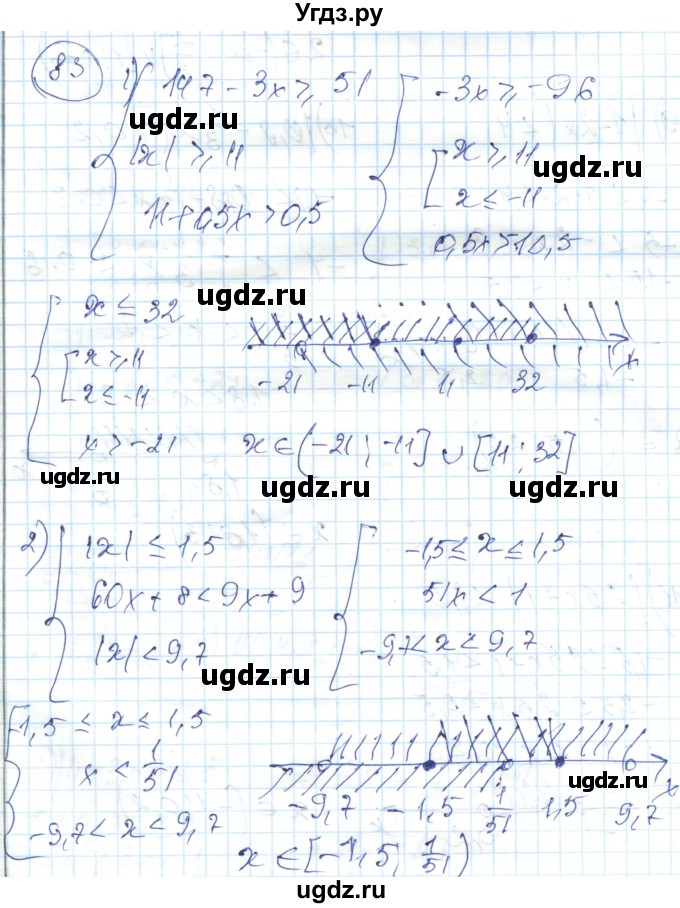 Угдз.ру
83
1) 147 - 3x ⩾ 51
|x| ⩾ 11
11 + 0,5x > 0,5
-3x ⩾ -96
x ⩾ 11
x ≤ -11
0,5x > 10,5
x ≤ 32
x ⩾ 11
x ≤ -11
x > -21
-21 -11 11 32 x
x ∈ (-21; -11] ∪ [11; 32]
2) |x| ≤ 1,5
60x + 8 < 9x + 9
|x| < 9,7
-1,5 ≤ x ≤ 1,5
51x < 1
-9,7 < x < 9,7
-1,5 ≤ x ≤ 1,5
x < 1/51
-9,7 < x < 9,7
-9,7 -1,5 1/51 1,5 9,7 x
x ∈ [-1,5; 1/51)
ugdz.ru
ugdz.ru
ugdz.ru
ugdz.ru
ugdz.ru
ugdz.ru
ugdz.ru
ugdz.ru
ugdz.ru
ugdz.ru
ugdz.ru
ugdz.ru
ugdz.ru
ugdz.ru